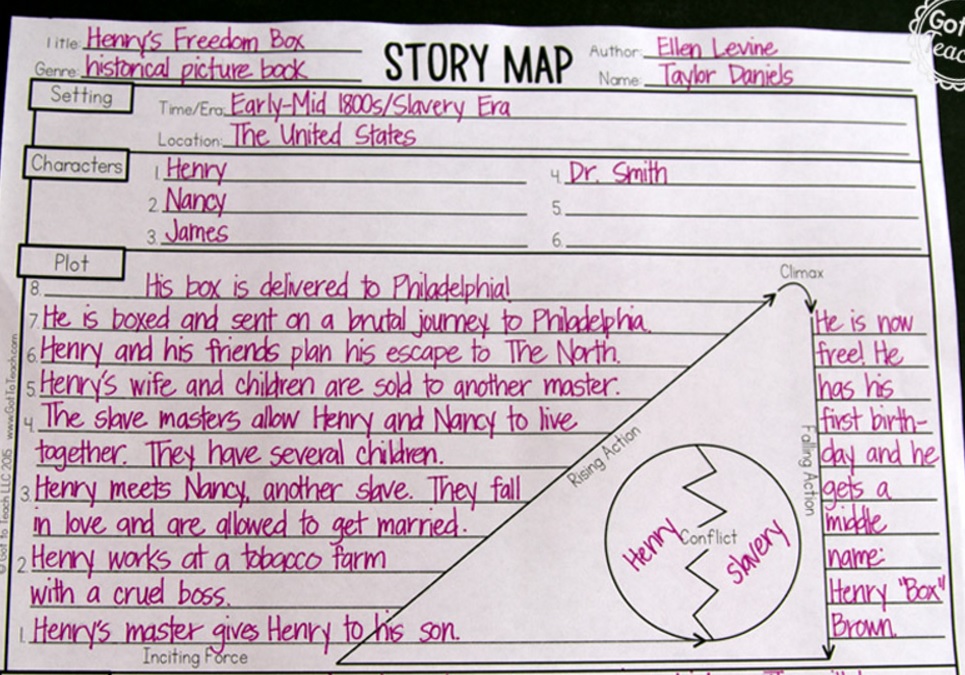 Got
Teac
Title: Henry's Freedom Box
STORY MAP
Author: Ellen Levine
Genre: historical picture book
Name: Taylor Daniels
Setting
Time/Era: Early-Mid 1800s/Slavery Era
Location: The United States
Characters
1. Henry
4. Dr. Smith
2. Nancy
5.
3. James
6.
Plot
Climax
8. His box is delivered to Philadelphia!
7. He is boxed and sent on a brutal journey to Philadelphia.
6. Henry and his friends plan his escape to The North.
5. Henry's wife and children are sold to another master.
4. The slave masters allow Henry and Nancy to live
together. They have several children.
3. Henry meets Nancy, another slave. They fall
in love and are allowed to get married.
2. Henry works at a tobacco farm
with a cruel boss.
1. Henry's master gives Henry to his son.
Inciting Force
Rising Action
Henry
Conflict
slavery
Falling Action
He is now
free! He
has his
first birth-
day and he
gets a
middle
name:
Henry "Box"
Brown.
© Got to Teach LLC 2015 www.GotToTeach.com